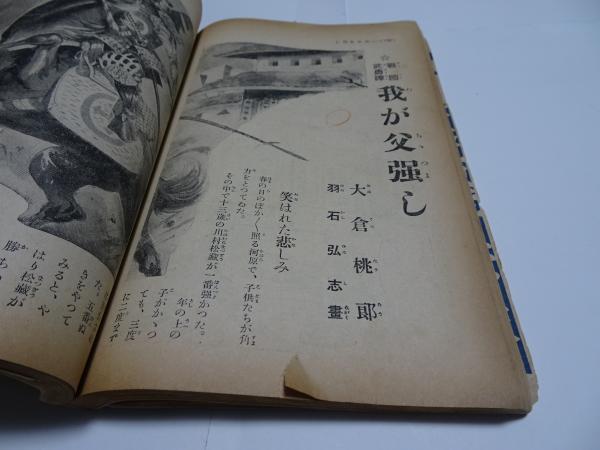 ☆戰國武勇譚
我が父強し
大倉桃郎
羽石弘志畫
笑はれた悲しみ
春の日のぽか〱照る河原で、子供たちが角
力をとつてゐた。
その中で十三歳の川村松藏が一番強かつた。
年の上の
子がかゝつ
ても、三度
に二度まで
た。五番ぬ
きをやつて
みると、や
はり松藏が
勝ち